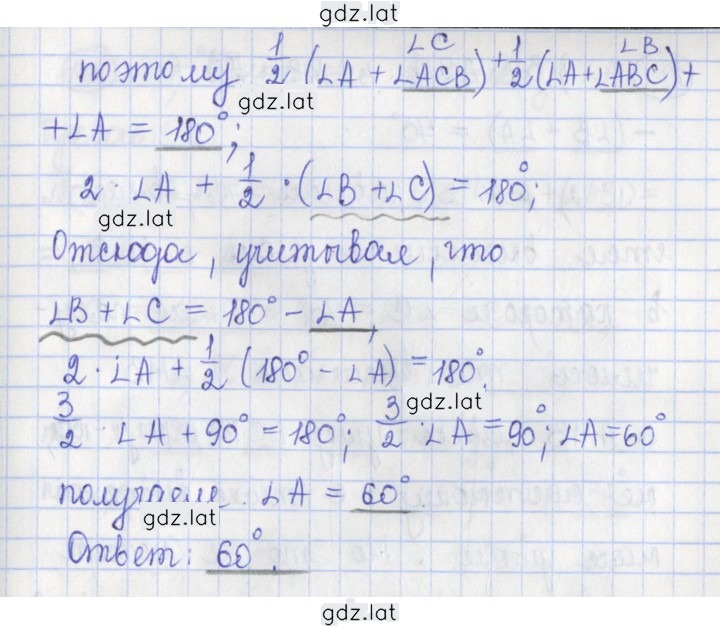 gdz.lat
поэтому 1/2 (∠A + ∠ACB) + 1/2 (∠A + ∠ABC) +
∠C ∠B
gdz.lat
+∠A = 180°;
2 · ∠A + 1/2 · (∠B + ∠C) = 180°;
gdz.lat
Отсюда, учитывая, что
∠B + ∠C = 180° − ∠A,
2 · ∠A + 1/2 (180° − ∠A) = 180°.
gdz.lat
3/2 · ∠A + 90° = 180°; 3/2 · ∠A = 90°; ∠A = 60°
получаем. ∠A = 60°.
gdz.lat
Ответ: 60°.
gdz.lat